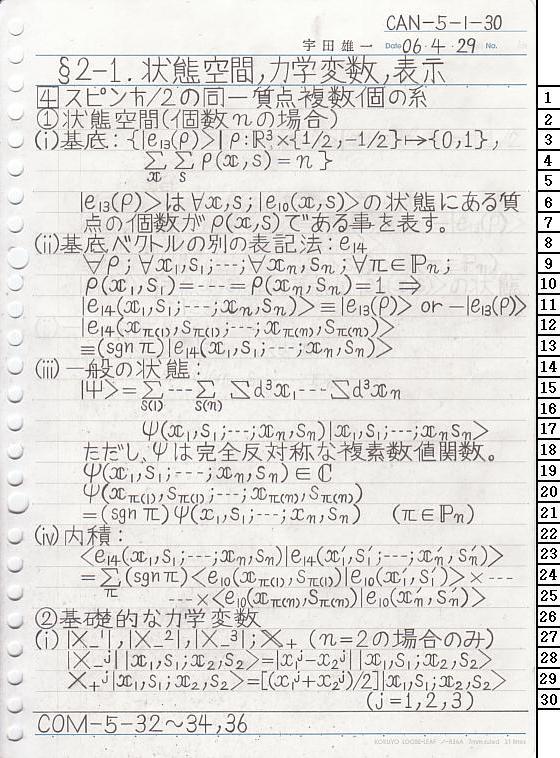 CAN-5-1-30
宇田雄一 Date 06・4・29 No.
§2-1. 状態空間,力学変数,表示
4 スピンℏ/2の同一質点複数個の系
①状態空間(個数nの場合)
(i)基底:{|e₁₃(ρ)>|ρ:ℝ³×{1/2,-1/2}↦{0,1},
∑∑ρ(x,s)=n}
x s
|e₁₃(ρ)>は∀x,s;|e₁₀(x,s)>の状態にある質
点の個数がρ(x,s)である事を表す。
(ii)基底ベクトルの別の表記法:e₁₄
∀ρ;∀x₁,s₁;---;∀xₙ,sₙ;∀π∈ℙₙ;
ρ(x₁,s₁)=---=ρ(xₙ,sₙ)=1 ⇒
|e₁₄(x₁,s₁;---;xₙ,sₙ)>≡|e₁₃(ρ)> or -|e₁₃(ρ)>
|e₁₄(x_π(1),s_π(1);---;x_π(n),s_π(n))>
≡(sgn π)|e₁₄(x₁,s₁;---;xₙ,sₙ)>
(iii)一般の状態:
|Ψ>=∑---∑ ∫d³x₁---∫d³xₙ
s(1) s(n)
ψ(x₁,s₁;---;xₙ,sₙ)|x₁,s₁;---;xₙsₙ>
ただし、ψは完全反対称な複素数値関数。
ψ(x₁,s₁;---;xₙ,sₙ)∈ℂ
ψ(x_π(1),s_π(1);---;x_π(n),s_π(n))
=(sgn π)ψ(x₁,s₁;---;xₙ,sₙ) (π∈ℙₙ)
(iv)内積:
<e₁₄(x₁,s₁;---;xₙ,sₙ)|e₁₄(x₁′,s₁′;---;xₙ′,sₙ′)>
=∑(sgn π)<e₁₀(x_π(1),s_π(1))|e₁₀(x₁′,s₁′)>×---
π
---×<e₁₀(x_π(n),s_π(n))|e₁₀(xₙ′,sₙ′)>
②基礎的な力学変数
(i)|X₋¹|,|X₋²|,|X₋³|;X₊ (n=2の場合のみ)
|X₋ʲ||x₁,s₁;x₂,s₂>=|x₁ʲ-x₂ʲ||x₁,s₁;x₂,s₂>
X₊ʲ|x₁,s₁;x₂,s₂>=[(x₁ʲ+x₂ʲ)/2]|x₁,s₁;x₂,s₂>
(j=1,2,3)
COM-5-32~34,36
KOKUYO LOOSE-LEAF ノ-836A 7mm ruled 31 lines
1
2
3
4
5
6
7
8
9
10
11
12
13
14
15
16
17
18
19
20
21
22
23
24
25
26
27
28
29
30